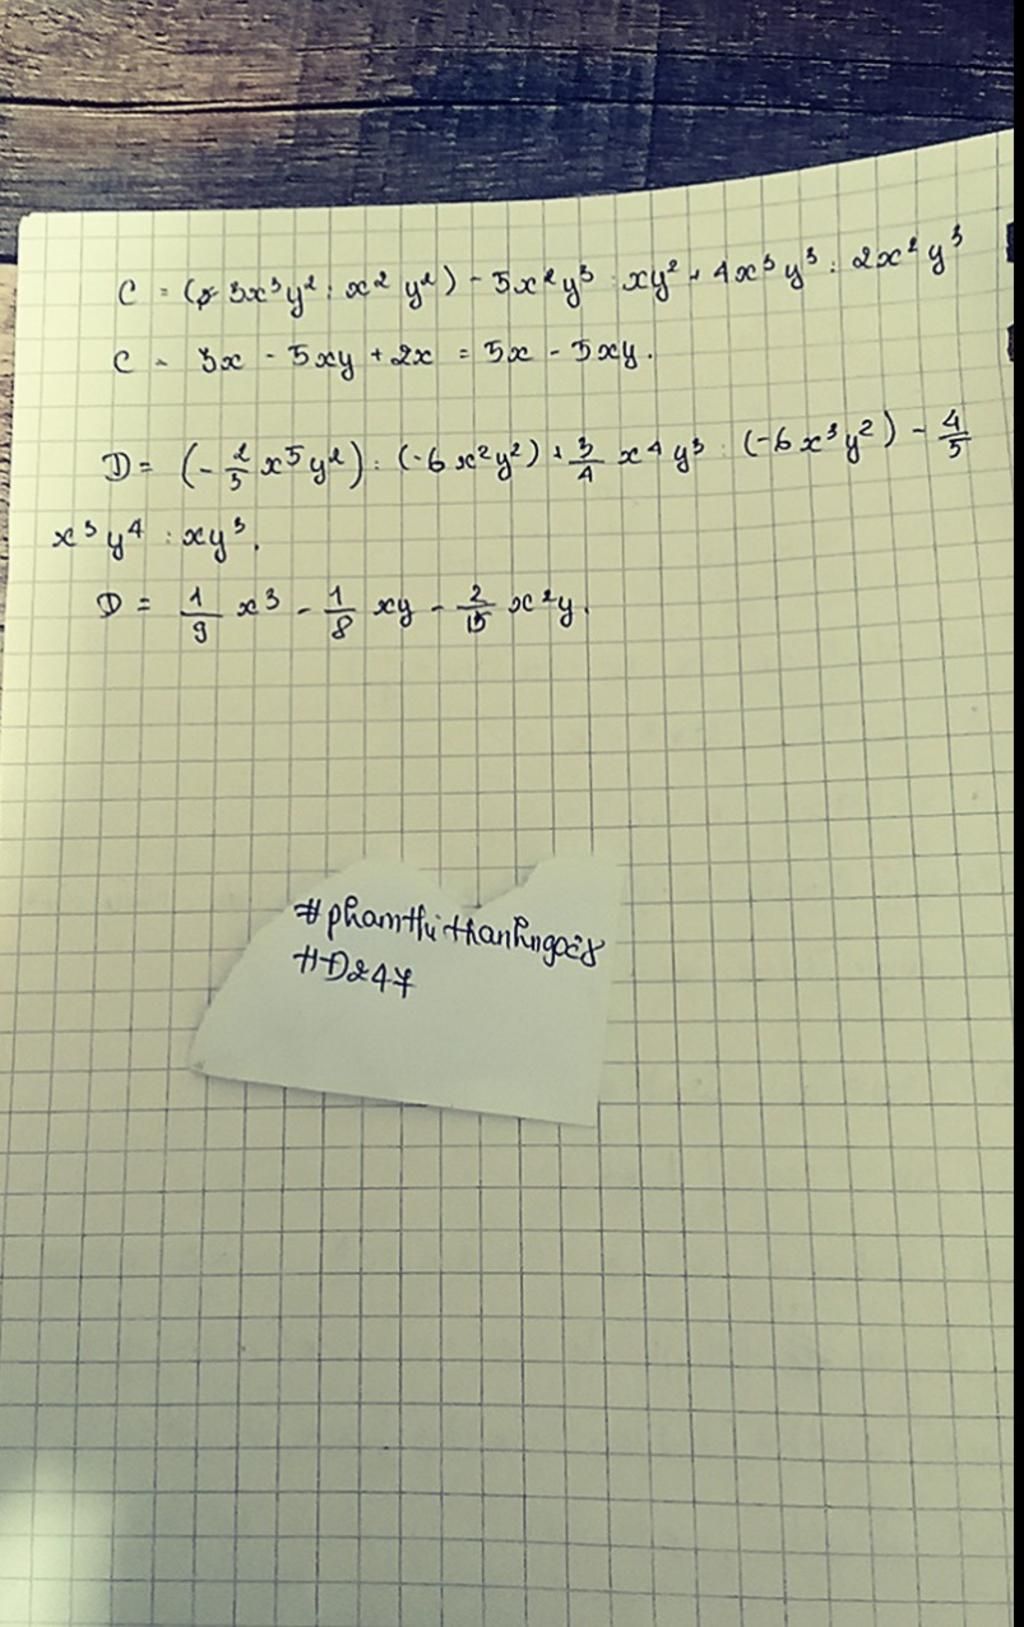 C = (3x³y² : x²y²) - 5x²y³ : xy² + 4x³y³ : 2x²y³
C = 3x - 5xy + 2x = 5x - 5xy.
D = (-2/3 x⁵y²) : (-6x²y²) + 3/4 x⁴y³ : (-6x³y²) - 4/5
x³y⁴ : xy³.
D = 1/9 x³ - 1/8 xy - 2/15 x²y.
#phamthithanhngoc8
#D247